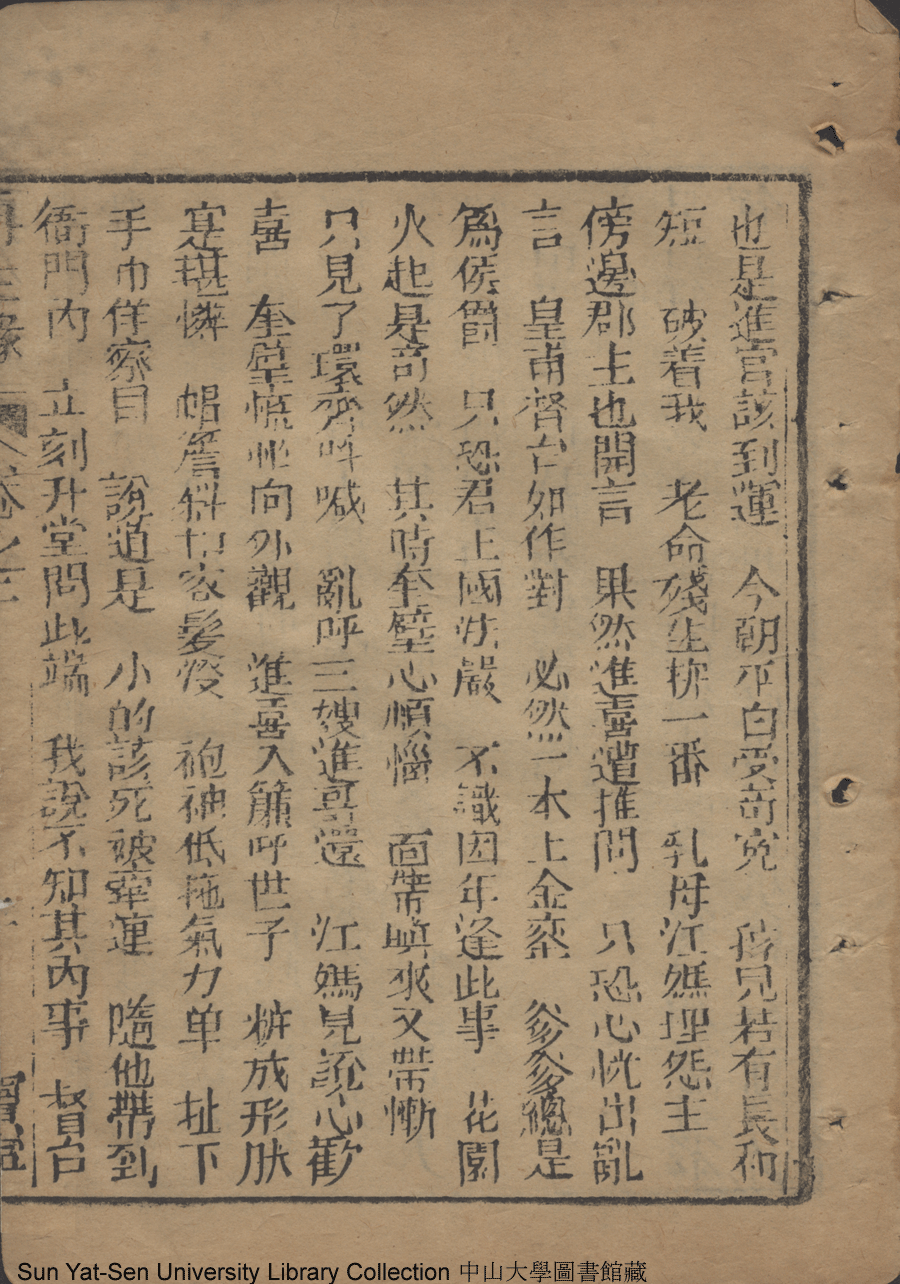 也是進宫該到運　今朝平白受苛寃　孩兒若有長和
短　破着我　老命殘生拚一番　乳母江媽埋怨主
傍邊郡主也開言　果然進喜遭推問　只恐心恍出亂
言　皇甫督台如作對　必然一本上金鑾　爹爹總是
為侯爵　只恐君王國法嚴　不識因年逢此事　花園
火起是苛然　其時奎璧心煩惱　面帶嗔來又帶慚
只見了環齊呌喊　亂呼三嫂進哥還　江媽見說心歡
喜　奎璧慌忙向外觀　進喜入簾呼世子　粧成形狀
寔堪憐　帽簷斜切家髮
袍袖低拖氣力单　扯下
手巾佯察目　說道是　小的該死被牽連　隨他帶到
衙門內　立刻升堂問此端　我說不知其內事　督台
再生緣　卷之三
Sun Yat-Sen University Library Collection 中山大學圖書館藏